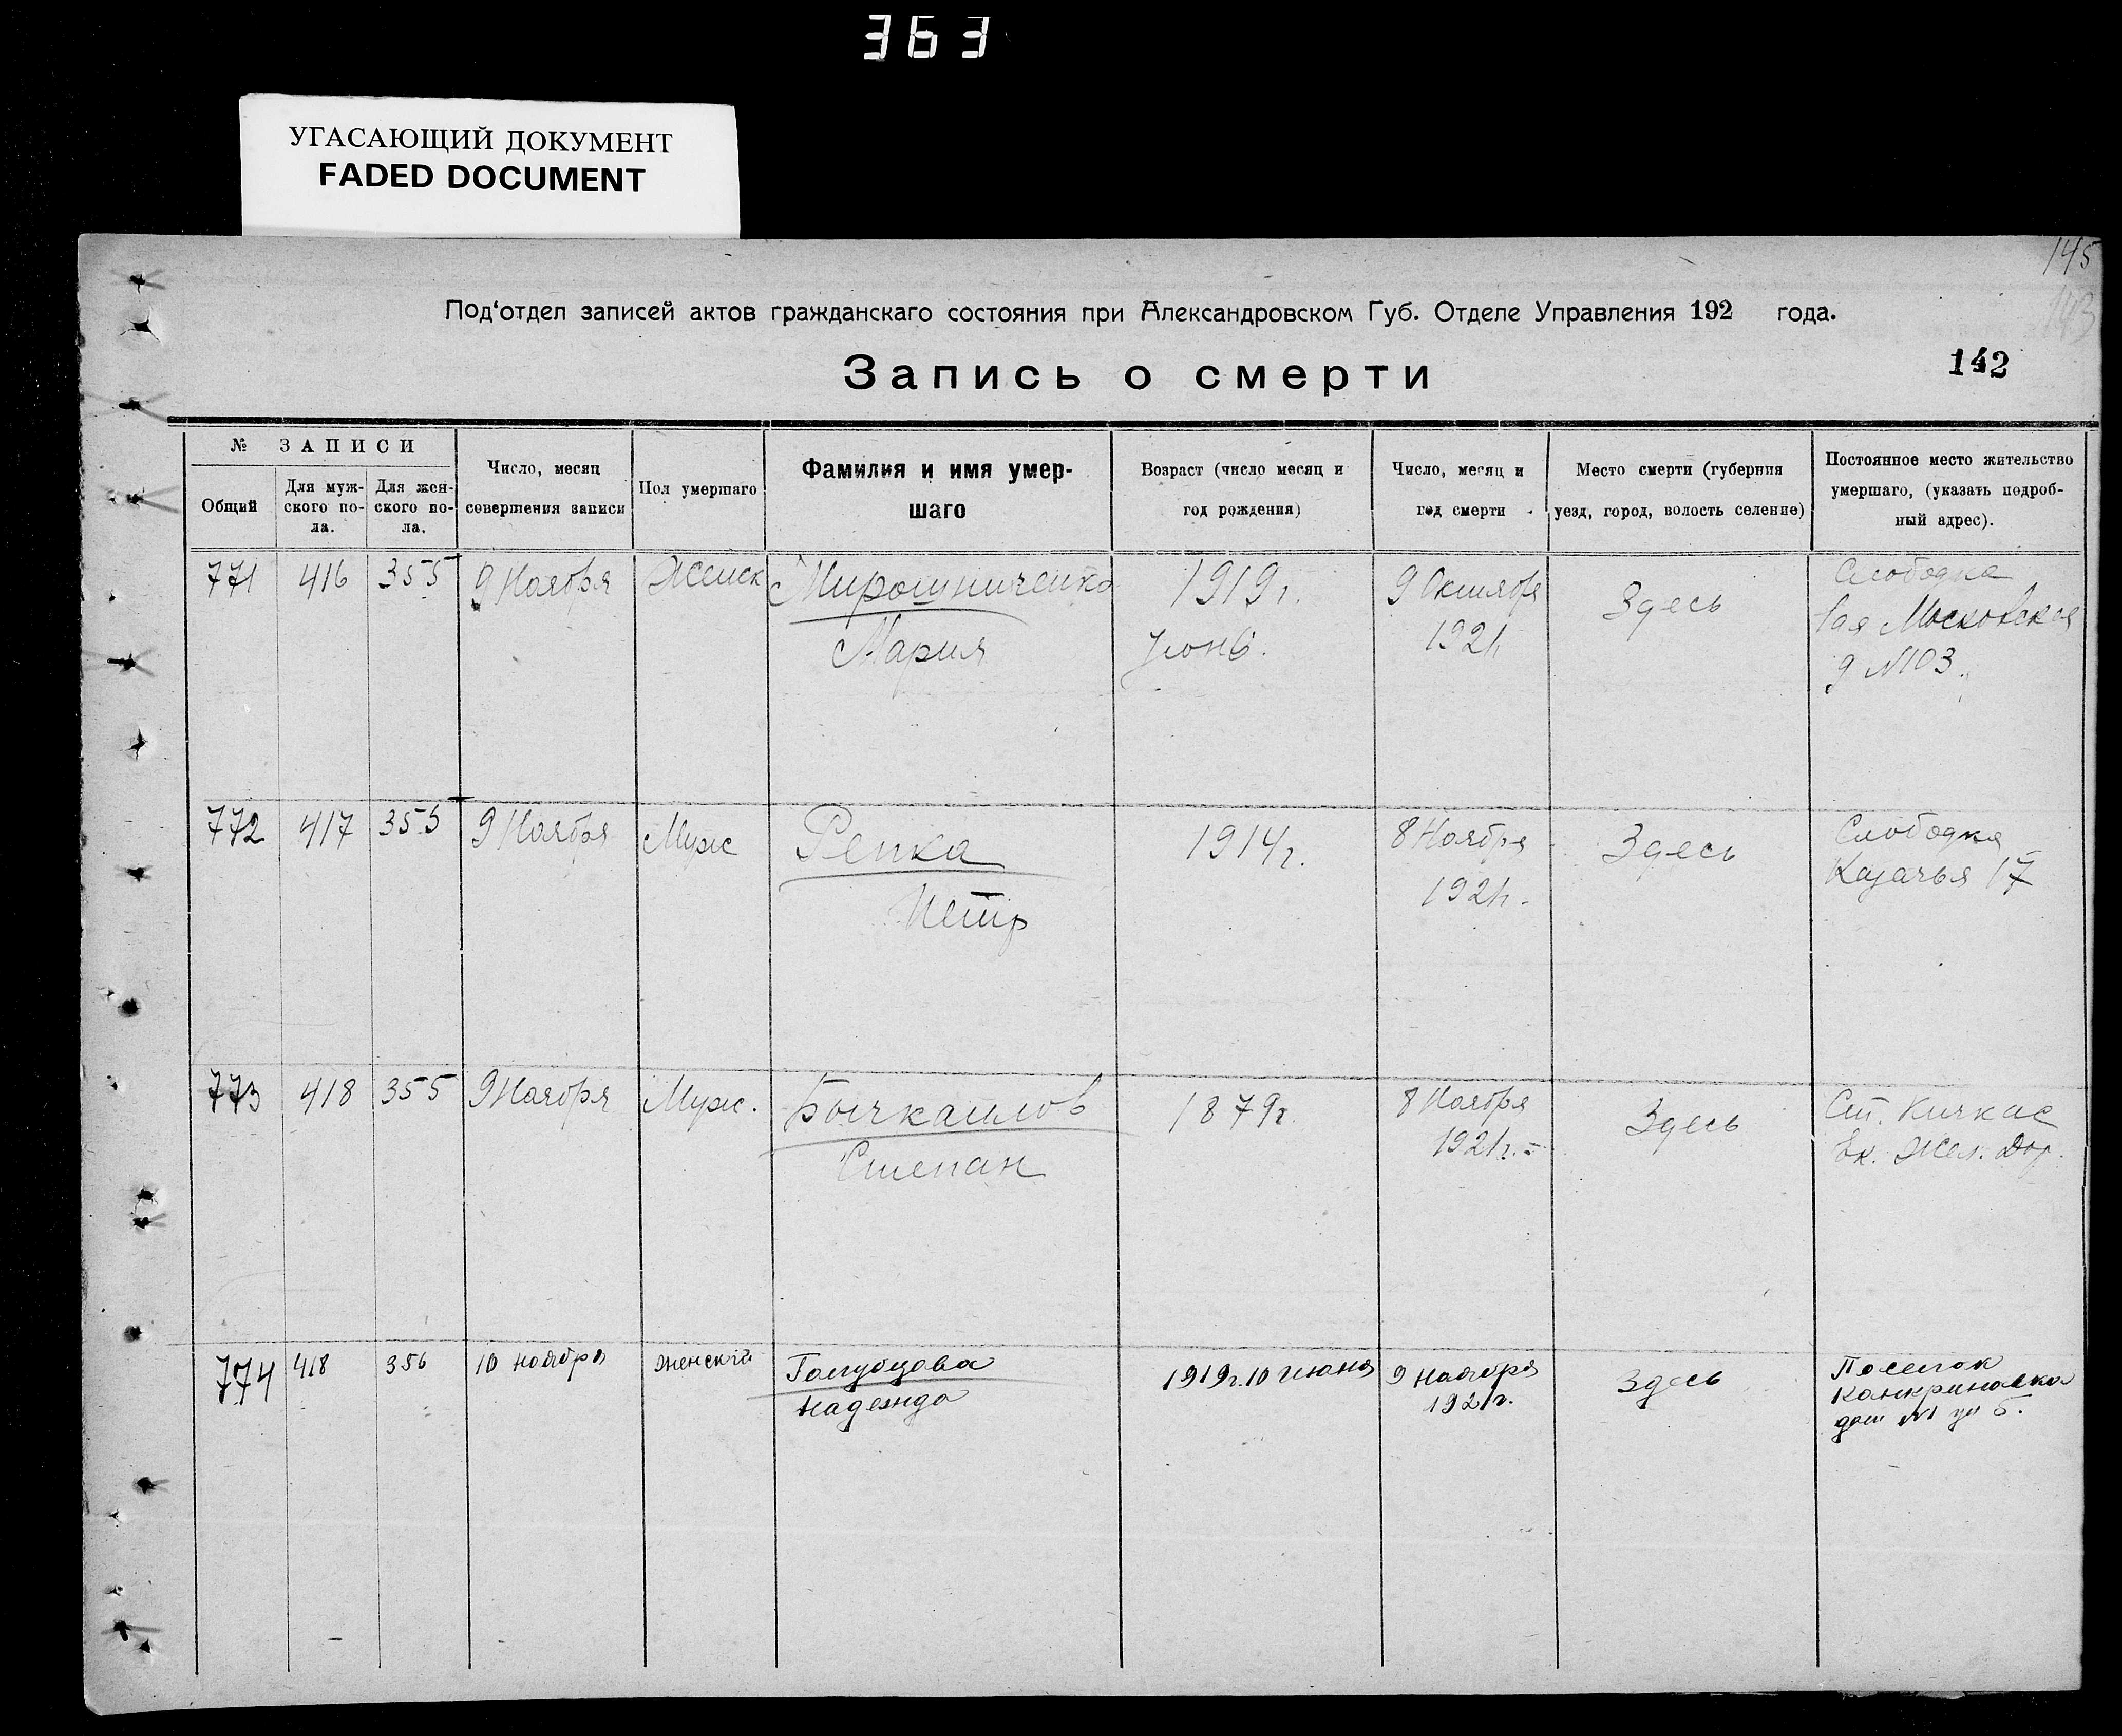 363
УГАСАЮЩИЙ ДОКУМЕНТ
FADED DOCUMENT
145
143
Под'отдел записей актов гражданскаго состояния при Александровском Губ. Отделе Управления 192 года.
Запись о смерти
142
№ ЗАПИСИ
Общий
Для муж-
ского по-
ла.
Для жен-
ского по-
ла.
Число, месяц
совершения записи
Пол умершаго
Фамилия и имя умер-
шаго
Возраст (число месяц и
год рождения)
Число, месяц и
год смерти
Место смерти (губерния
уезд, город, волость селение)
Постоянное место жительство
умершаго, (указать подроб-
ный адрес).
771
416
355
9 Ноября
Женск
Мирошниченко
Мария
1919г.
Июнь.
9 Октября
1921
Здесь
Слободка
1ая Московская
д №103.
772
417
355
9 Ноября
Муж
Репка
Петр
1914г.
8 Ноября
1921г.
Здесь
Слободка
Казачья 17
773
418
355
9 Ноября
Муж.
Степан
1879г.
8 Ноября
1921г.
Здесь
Ст. Кичкас
Ек. Жел. Дор.
774
418
356
10 ноября
женский
Голубцова
Надежда
1919г. 10 июня
9 Ноября
1921г.
Здесь
Поселок
Канкриновка
дом №1